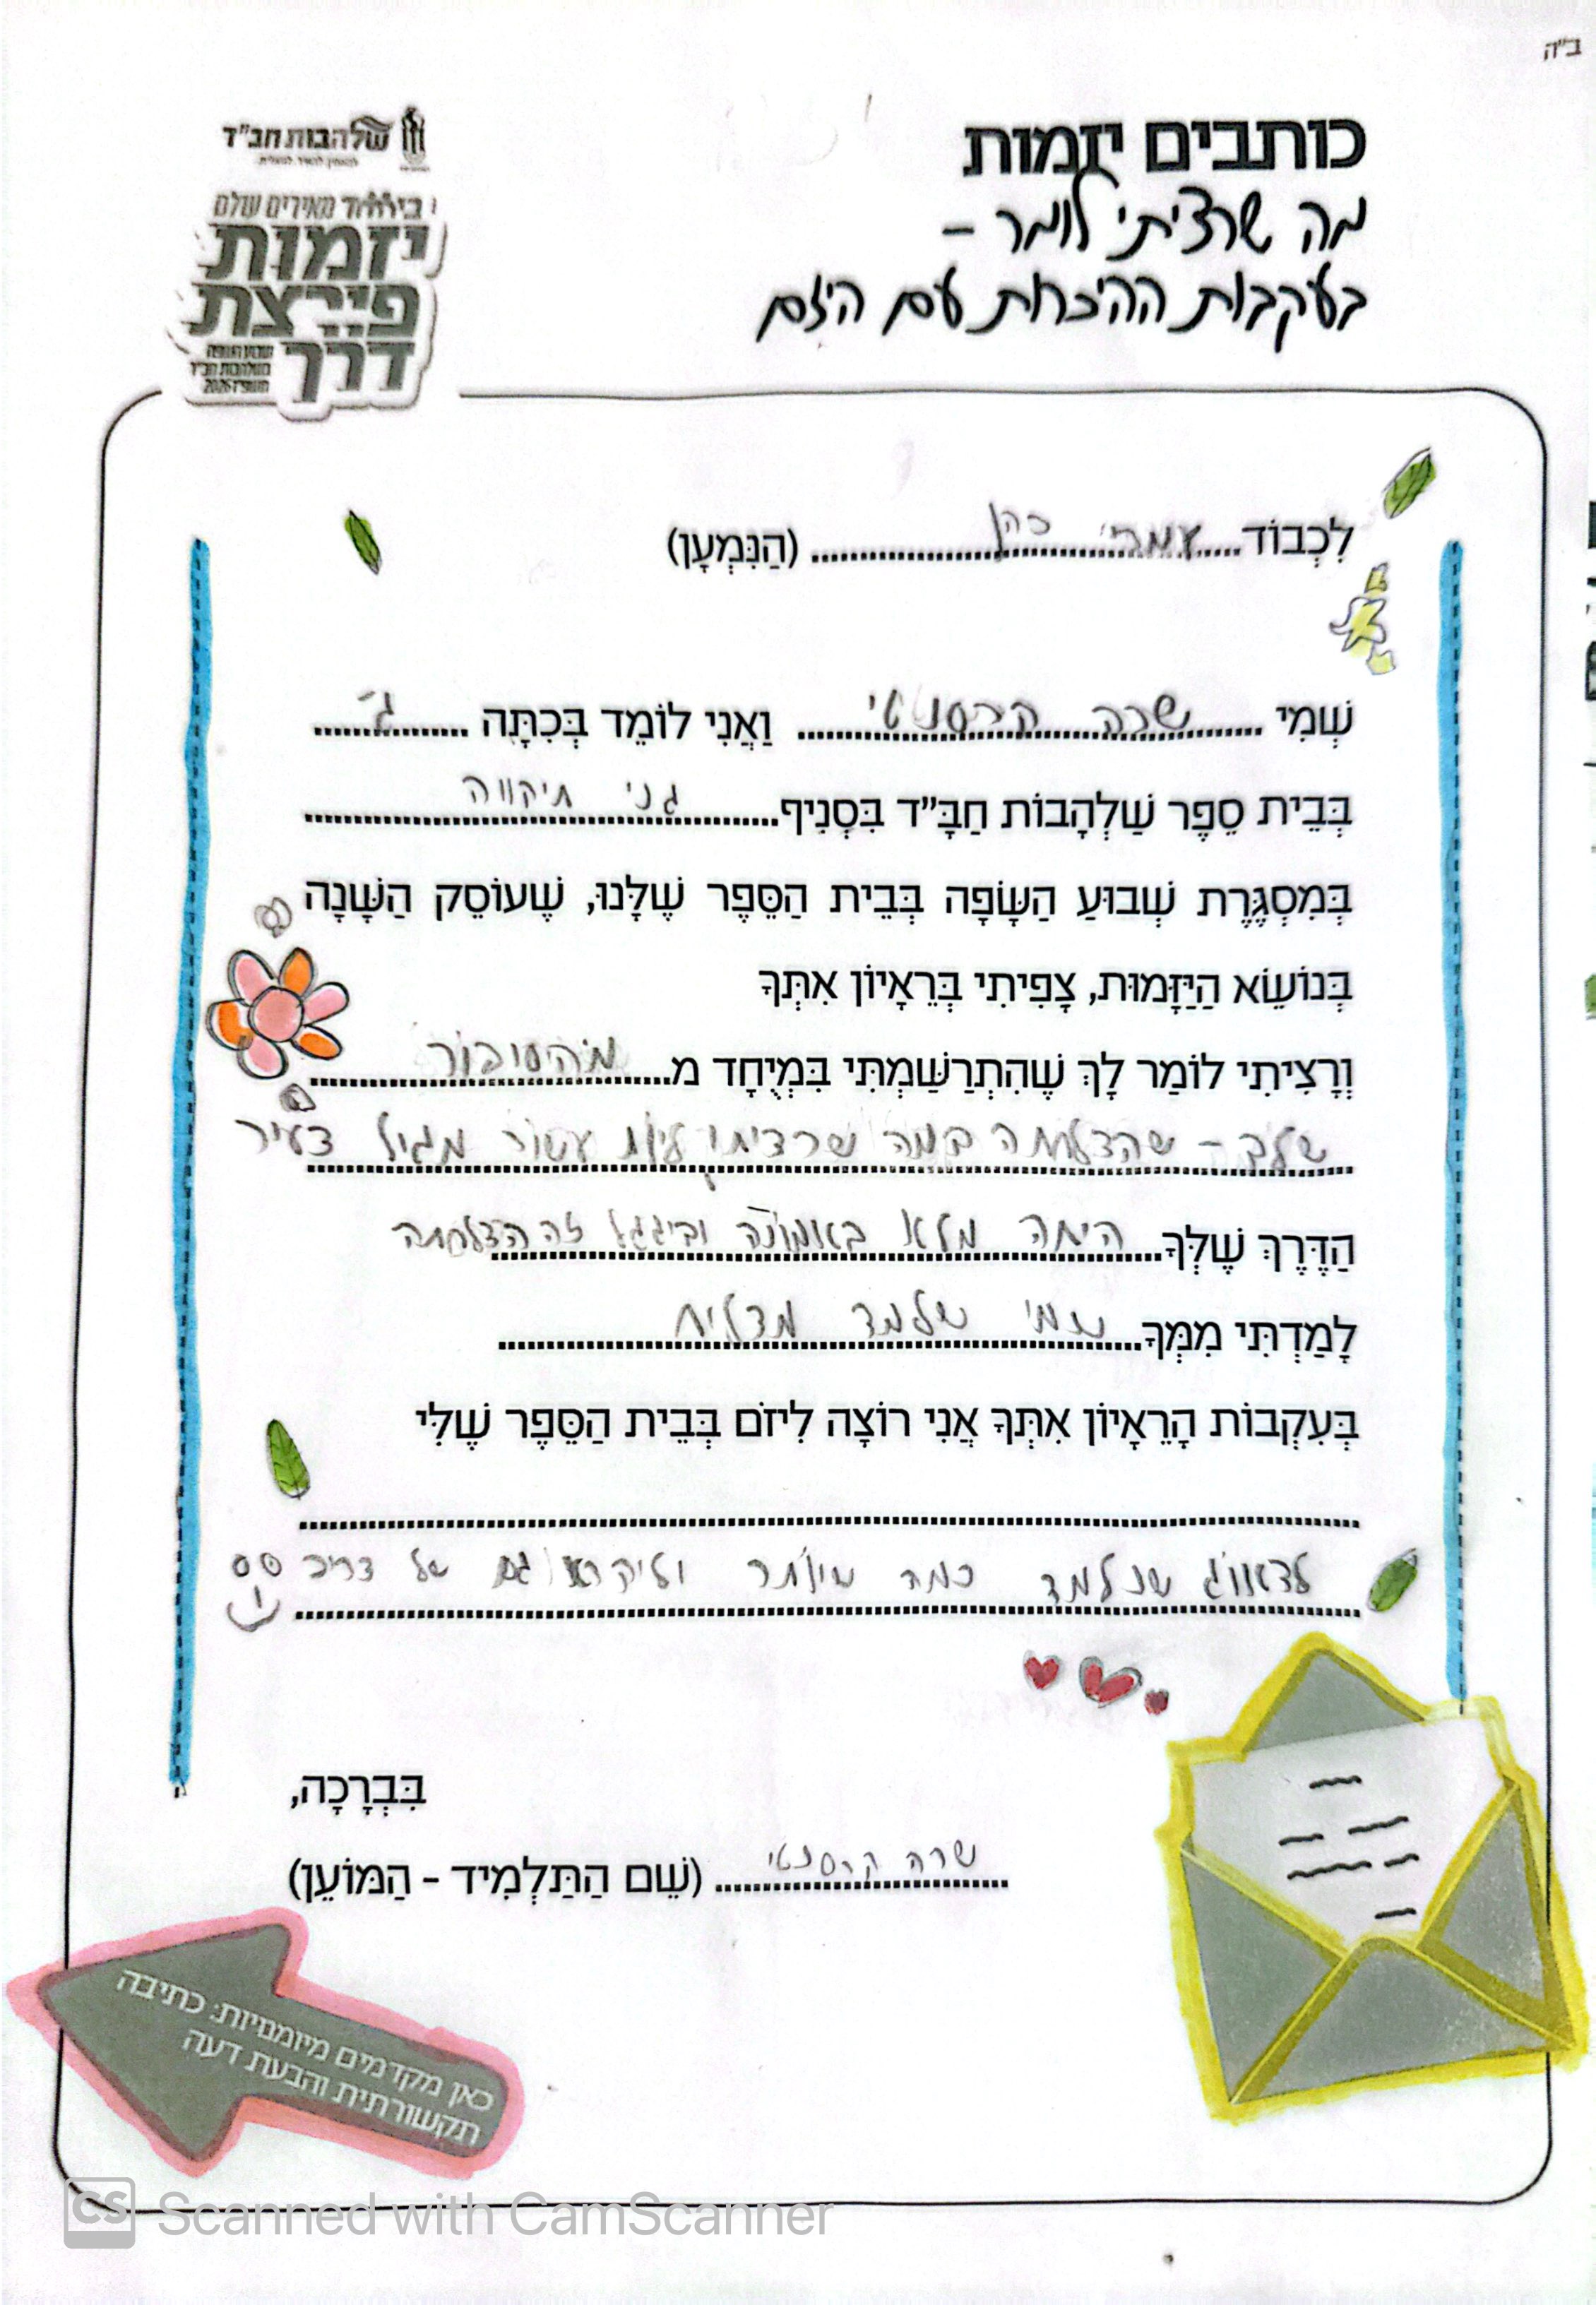 ב"ה
כותבים יזמות
מה שרציתי לומר –
בעקבות ההיכרות עם היזם
שלהבות חב"ד
בייחוד מאירים עולם
יזמות
פורצת
דרך
לִכְבוֹד עמרי כהן (הַנִּמְעָן)
שְׁמִי שרה הרסנטי וַאֲנִי לוֹמֵד בְּכִתָּה ג'
בְּבֵית סֵפֶר שַׁלְהָבוֹת חַבָּ"ד בִּסְנִיף גני תיקווה
בְּמִסְגֶּרֶת שְׁבוּעַ הַשָּׂפָה בְּבֵית הַסֵּפֶר שֶׁלָּנוּ, שֶׁעוֹסֵק הַשָּׁנָה
בְּנוֹשֵׂא הַיַּזָּמוּת, צָפִיתִי בְּרֵאָיוֹן אִתְּךָ
וְרָצִיתִי לוֹמַר לָךְ שֶׁהִתְרַשַּׁמְתִּי בִּמְיֻחָד מ מהסיבור
שלך - שהצלחתה במה שרציתי עשור מגיל צעיר
הַדֶּרֶךְ שֶׁלְּךָ היתה מלא באמונה ובגלל זה הצלחתה
לָמַדְתִּי מִמְּךָ שמי שלמד מצליח
בְּעִקְבוֹת הָרֵאָיוֹן אִתְּךָ אֲנִי רוֹצָה לִיזֹם בְּבֵית הַסֵּפֶר שֶׁלִּי
לדאוג שנלמד כמה שיותר וליקרא גם של צריך
בִּבְרָכָה,
שרה הרסנטי (שֵׁם הַתַּלְמִיד - הַמּוֹעֵן)
כאן מקדמים מיומנויות: כתיבה
תקשורתית והבעת דעה
CS Scanned with CamScanner